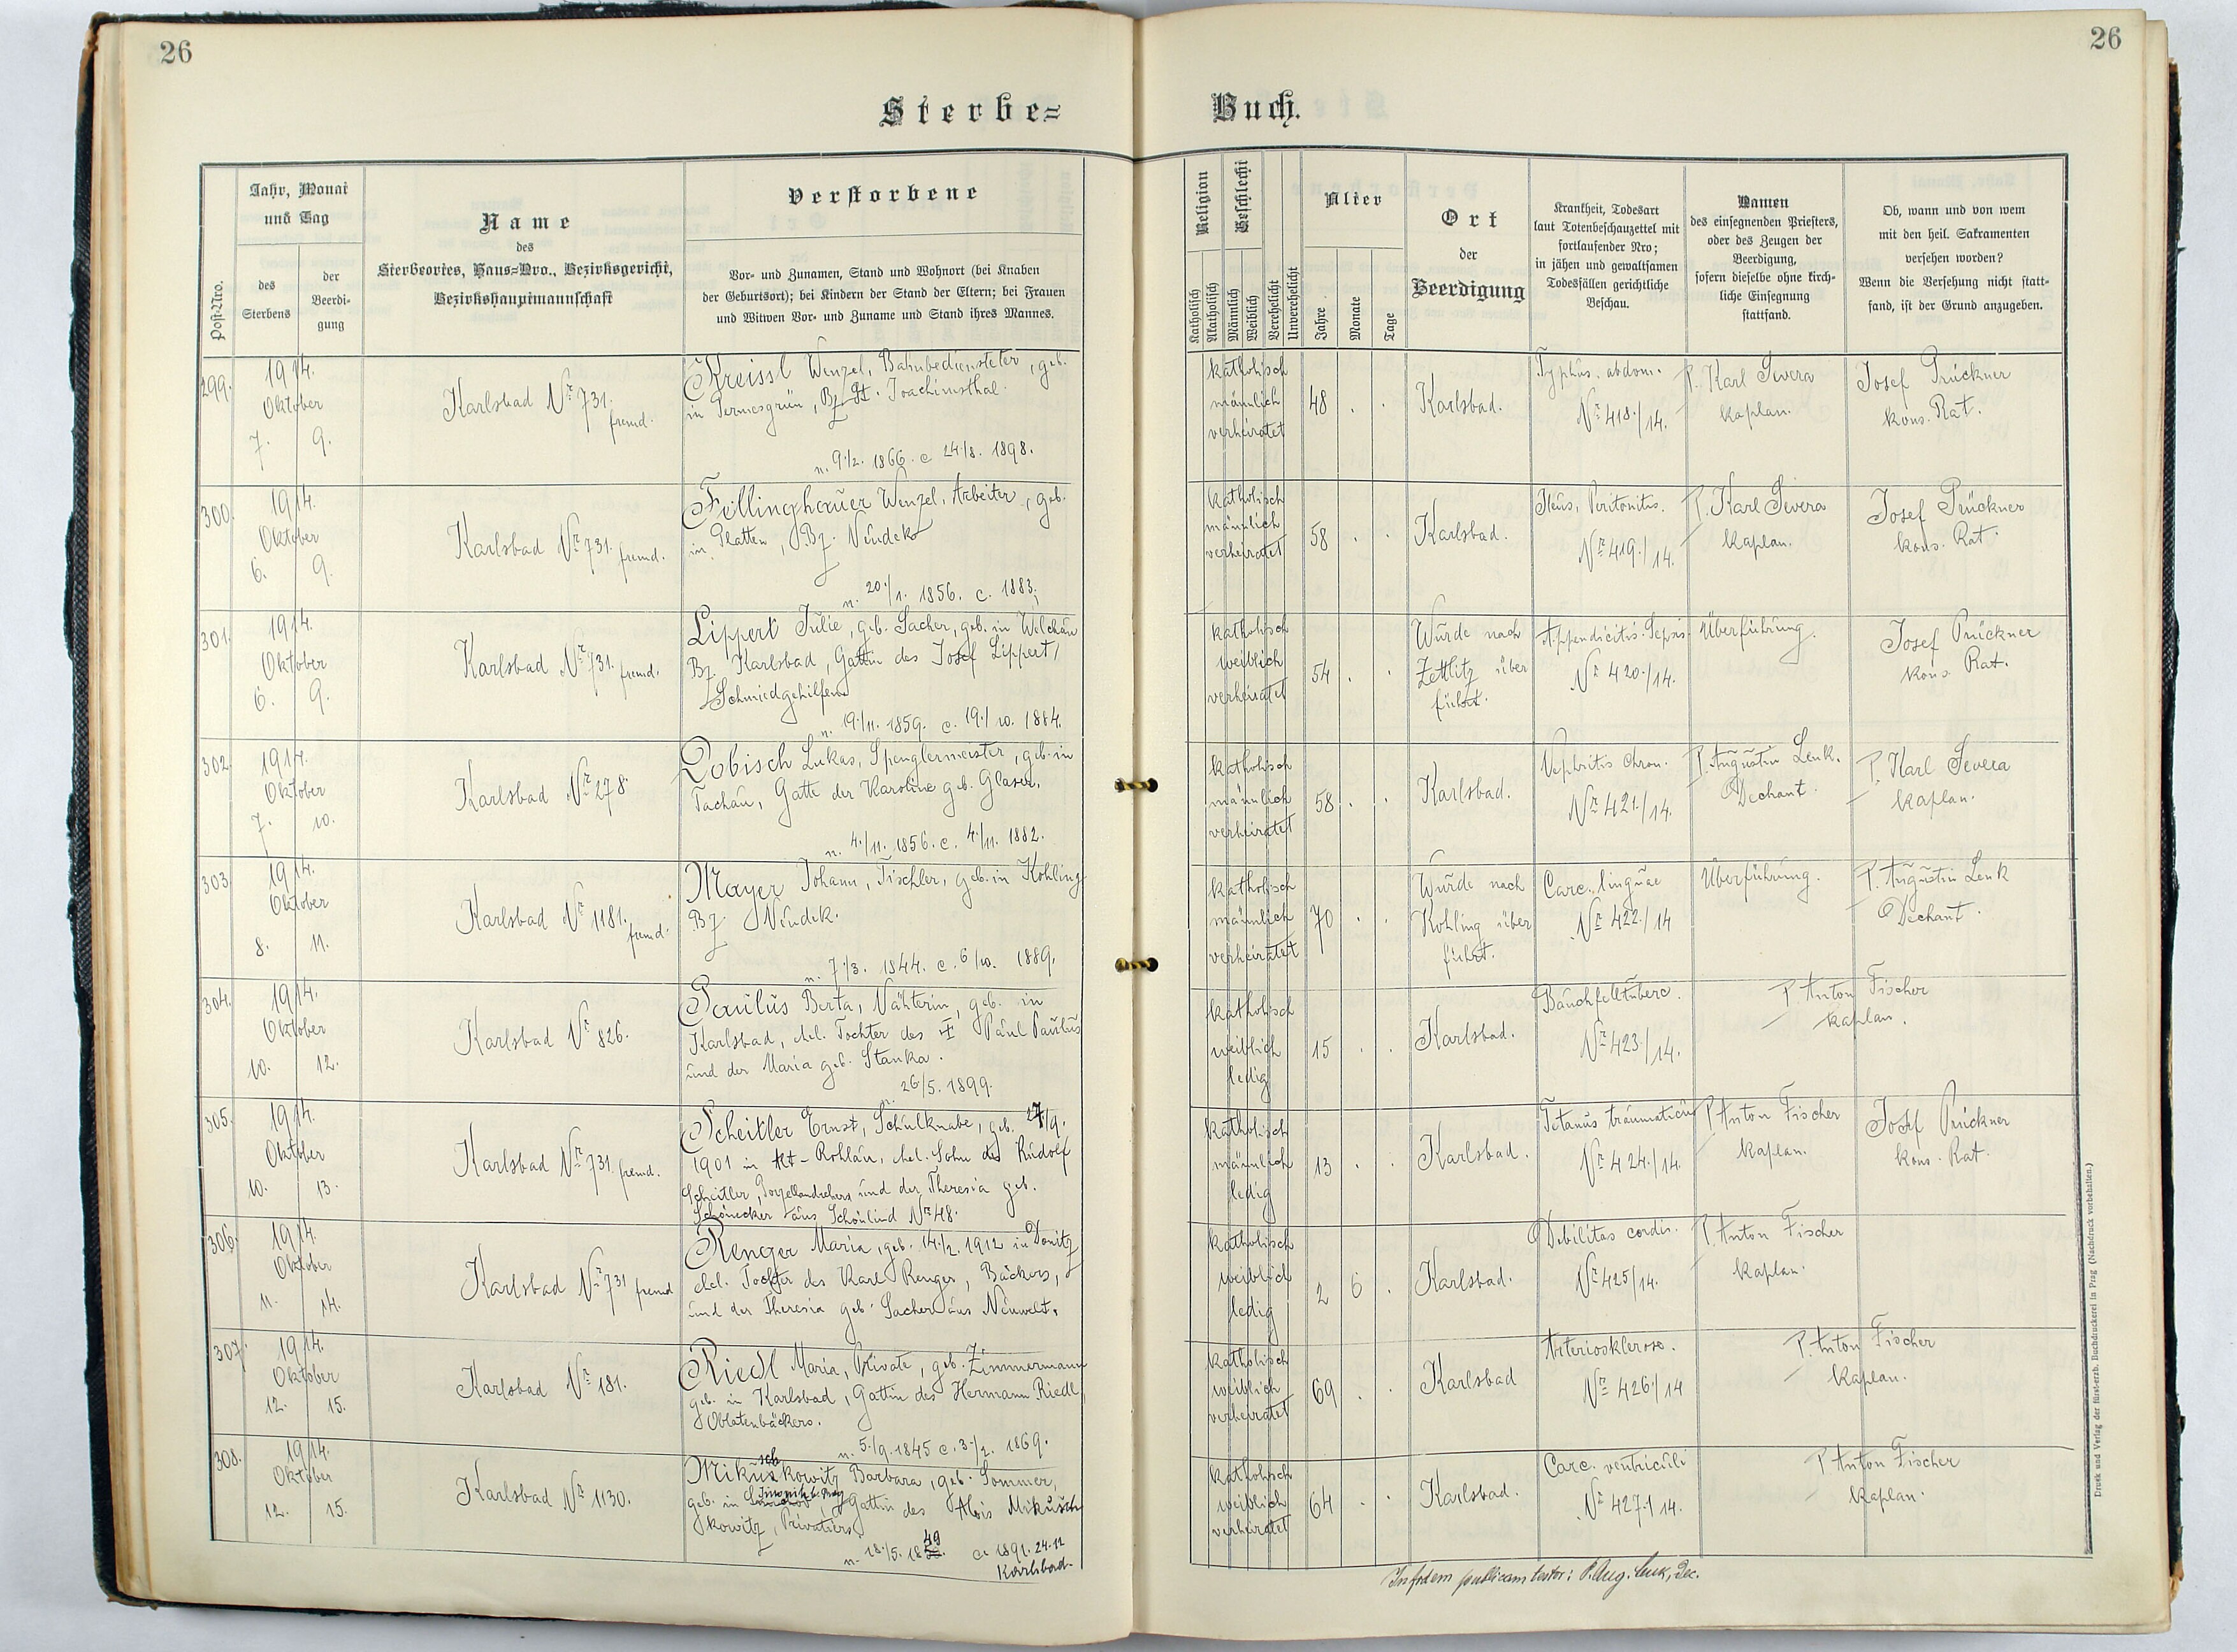 26
26
Sterbe=
Buch.
Post-Nro.
Jahr, Monat
und Tag
des
Sterbens
der
Beerdi-
gung
Name
des
Sterbeortes, Haus=Nro., Bezirksgericht,
Bezirkshauptmannschaft
Verstorbene
Vor- und Zunamen, Stand und Wohnort (bei Knaben
der Geburtsort); bei Kindern der Stand der Eltern; bei Frauen
und Witwen Vor- und Zuname und Stand ihres Mannes.
Religion
Katholisch
Akatholisch
Geschlecht
Männlich
Weiblich
Verehelicht
Unverehelicht
Alter
Jahre
Monate
Tage
Ort
der
Beerdigung
Krankheit, Todesart
laut Totenbeschauzettel mit
fortlaufender Nro;
in jähen und gewaltsamen
Todesfällen gerichtliche
Beschau.
Namen
des einsegnenden Priesters,
oder des Zeugen der
Beerdigung,
sofern dieselbe ohne kirch-
liche Einsegnung
stattfand.
Ob, wann und von wem
mit den heil. Sakramenten
versehen worden?
Wenn die Versehung nicht statt-
fand, ist der Grund anzugeben.
299.
1914.
Oktober
7. 9.
Karlsbad Nr. 731. fremd.
Kreissl Wenzel, Bahnbediensteter, geb.
in Permesgrün, Bz. St. Joachimsthal.
n. 9./2. 1866. c 24./8. 1898.
katholisch
männlich
verheiratet
48 . .
Karlsbad.
Typhus. abdom.
Nr. 418./14.
P. Karl Severa
kaplan.
Josef Prückner
kons. Rat.
300.
1914.
Oktober
6. 9.
Karlsbad Nr. 731. fremd.
Fillinghauer Wenzel, Arbeiter, geb.
in Platten, Bz. Neudek
n. 20./1. 1856. c. 1883.
katholisch
männlich
verheiratet
58 . .
Karlsbad.
Ileus, Peritonitis.
Nr. 419./14.
P. Karl Severa
kaplan.
Josef Prückner
kons. Rat.
301.
1914.
Oktober
6. 9.
Karlsbad Nr. 731. fremd.
Lippert Julie, geb. Sacher, geb. in Welchau
Bz. Karlsbad, Gattin des Josef Lippert,
Schmiedgehilfen
n. 19./11. 1859. c. 19./10. 1884.
katholisch
weiblich
verheiratet
54 . .
Wurde nach
Zettlitz über
führt.
Appendicitis. Sepsis.
Nr. 420./14.
Überführung.
Josef Prückner
kons. Rat.
302.
1914.
Oktober
7. 10.
Karlsbad Nr. 278.
Lobisch Lukas, Spenglermeister, geb. in
Tachau, Gatte der Karoline geb. Glaser.
n. 4./11. 1856. c. 4./11. 1882.
katholisch
männlich
verheiratet
58 . .
Karlsbad.
Nephritis chron.
Nr. 421./14.
P. Augustin Lenk.
Dechant.
P. Karl Severa
kaplan.
303.
1914.
Oktober
8. 11.
Karlsbad Nr. 1181. fremd.
Mayer Johann, Tischler, geb. in Kohling
Bz. Neudek.
n. 7./3. 1844. c. 6/10. 1889.
katholisch
männlich
verheiratet
70 . .
Wurde nach
Kohling über
führt.
Carc. linguae
Nr. 422./14
Überführung.
P. Augustin Lenk
Dechant.
304.
1914.
Oktober
10. 12.
Karlsbad Nr. 826.
Paulus Berta, Nähterin, geb. in
Karlsbad, ehel. Tochter des ‡ Paul Paulus
und der Maria geb. Stanka.
n. 26/5. 1899.
katholisch
weiblich
ledig
15 . .
Karlsbad.
Bauchfelltuberc.
Nr. 423/14.
P. Anton Fischer
kaplan.
305.
1914.
Oktober
10. 13.
Karlsbad Nr. 731. fremd.
Scheitler Ernst, Schulknabe, geb. 27/9.
1901 in Alt-Rohlau, ehel. Sohn des Rudolf
Scheitler, Porzellandrehers und der Theresia geb.
Schönecker aus Schönlind Nr. 48.
katholisch
männlich
ledig
13 . .
Karlsbad.
Tetanus traumaticus
Nr. 424./14.
P. Anton Fischer
kaplan.
Josef Prückner
kons. Rat.
306.
1914.
Oktober
11. 14.
Karlsbad Nr. 731 fremd
Renger Maria, geb. 14./2. 1912 in Donitz
ehel. Tochter des Karl Renger, Bäckers,
und der Theresia geb. Sacher aus Neuwelt.
katholisch
weiblich
ledig
2 6 .
Karlsbad.
Debilitas cordis.
Nr. 425/14.
P. Anton Fischer
kaplan.
307.
1914.
Oktober
12. 15.
Karlsbad Nr. 181.
Riedl Maria, Private, geb. Zimmermann
geb. in Karlsbad, Gattin des Hermann Riedl,
Oblatenbäckers.
n. 5./9. 1845 c. 3./2. 1869.
katholisch
weiblich
verheiratet
69 . .
Karlsbad
Arteriosklerose.
Nr. 426./14
P. Anton Fischer
kaplan.
308.
1914.
Oktober
12. 15.
Karlsbad Nr. 1130.
sch
Mikuskowitz Barbara, geb. Sommer,
geb. in Gattin des Alois Mikusch
kowitz, Privatiers.
n. 18./5. 1849 c. 1891. 24.11
Karlsbad.
katholisch
weiblich
verheiratet
64 . .
Karlsbad.
Carc. ventriculi
Nr. 427./14.
P. Anton Fischer
kaplan.
In fidem publicam testor: P. Aug. Lenk, Dec.
Druck und Verlag der fürst-erzb. Buchdruckerei in Prag (Nachdruck vorbehalten.)